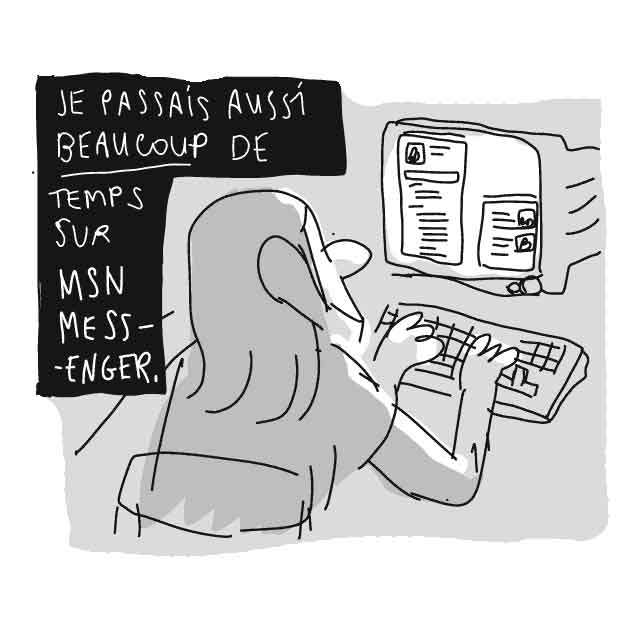 JE PASSAIS AUSSI
BEAUCOUP DE
TEMPS
SUR
MSN
MESS-
-ENGER.